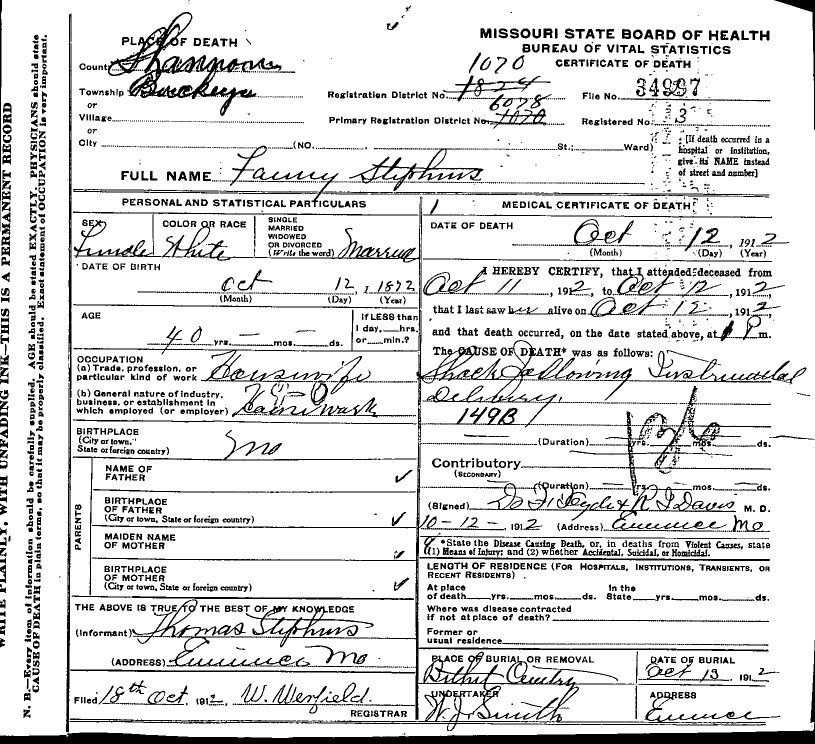 MISSOURI STATE BOARD OF HEALTH
BUREAU OF VITAL STATISTICS
CERTIFICATE OF DEATH
PLACE OF DEATH
County Shannon
Township
or
Village
or
City (NO. St.; Ward)
1070
Registration District No. 1824 File No. 34997
6078
Primary Registration District No. 1070 Registered No. 3
[If death occurred in a
hospital or institution,
give its NAME instead
of street and number]
FULL NAME Fanny Stephens
PERSONAL AND STATISTICAL PARTICULARS
SEX
Female
COLOR OR RACE
White
SINGLE
MARRIED
WIDOWED
OR DIVORCED
(Write the word) Married
DATE OF BIRTH
Oct 12, 1872
(Month) (Day) (Year)
AGE
40 yrs. — mos. — ds.
If LESS than
1 day, hrs.
or min.?
OCCUPATION
(a) Trade, profession, or
particular kind of work Housewife
(b) General nature of industry,
business, or establishment in
which employed (or employer)
BIRTHPLACE
(City or town,
State or foreign country) Mo
PARENTS
NAME OF
FATHER ✓
BIRTHPLACE
OF FATHER
(City or town, State or foreign country) ✓
MAIDEN NAME
OF MOTHER ✓
BIRTHPLACE
OF MOTHER
(City or town, State or foreign country) ✓
THE ABOVE IS TRUE TO THE BEST OF MY KNOWLEDGE
(Informant) Thomas Stephens
(ADDRESS) Eminence Mo
Filed 18th Oct. 1912, W. Werfield.
REGISTRAR
MEDICAL CERTIFICATE OF DEATH
DATE OF DEATH
Oct 12, 1912
(Month) (Day) (Year)
I HEREBY CERTIFY, that I attended deceased from
Oct 11, 1912, to Oct 12, 1912,
that I last saw her alive on Oct 12, 1912
and that death occurred, on the date stated above, at 1 P m.
The CAUSE OF DEATH* was as follows:
Shock Following Instrumental
Delivery.
149B
(Duration) yrs. mos. ds.
Contributory
(SECONDARY)
(Duration) yrs. mos. ds.
(Signed) & R I Davis M. D.
10-12-, 1912 (Address) Eminence Mo
*State the Disease Causing Death, or, in deaths from Violent Causes, state
(1) Means of Injury; and (2) whether Accidental, Suicidal, or Homicidal.
LENGTH OF RESIDENCE (FOR HOSPITALS, INSTITUTIONS, TRANSIENTS, OR
RECENT RESIDENTS)
At place
of death yrs. mos. ds.
In the
State yrs. mos. ds.
Where was disease contracted
if not at place of death?
Former or
usual residence
PLACE OF BURIAL OR REMOVAL
DATE OF BURIAL
Oct 13, 1912
UNDERTAKER
W. J. Smith
ADDRESS
Eminence
WRITE PLAINLY, WITH UNFADING INK—THIS IS A PERMANENT RECORD
N. B.—Every item of information should be carefully supplied. AGE should be stated EXACTLY. PHYSICIANS should state
CAUSE OF DEATH in plain terms, so that it may be properly classified. Exact statement of OCCUPATION is very important.